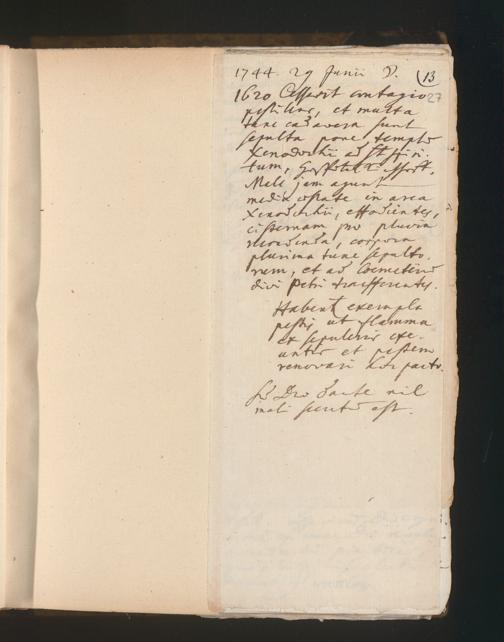 1744. 29 Junii D. (13
1620 Cessavit contagio 27
pestilens, et multa
tunc cadavera sunt
sepulta pone templo
Xenodochii ad S. Spiri-
tum,
jam agunt
media aestate in area
Xenodochii, effodientes,
cisternam pro pluvia
, corpora
plurima tunc sepulto-
rum, et ad Coemeterio
divi Petri transferentes.
Habent exempla
pestis ut flamma
ex sepulcris exe-
untis et pestem
renovari hoc pacto.
Sed Deo dante nil
mali secutum est.